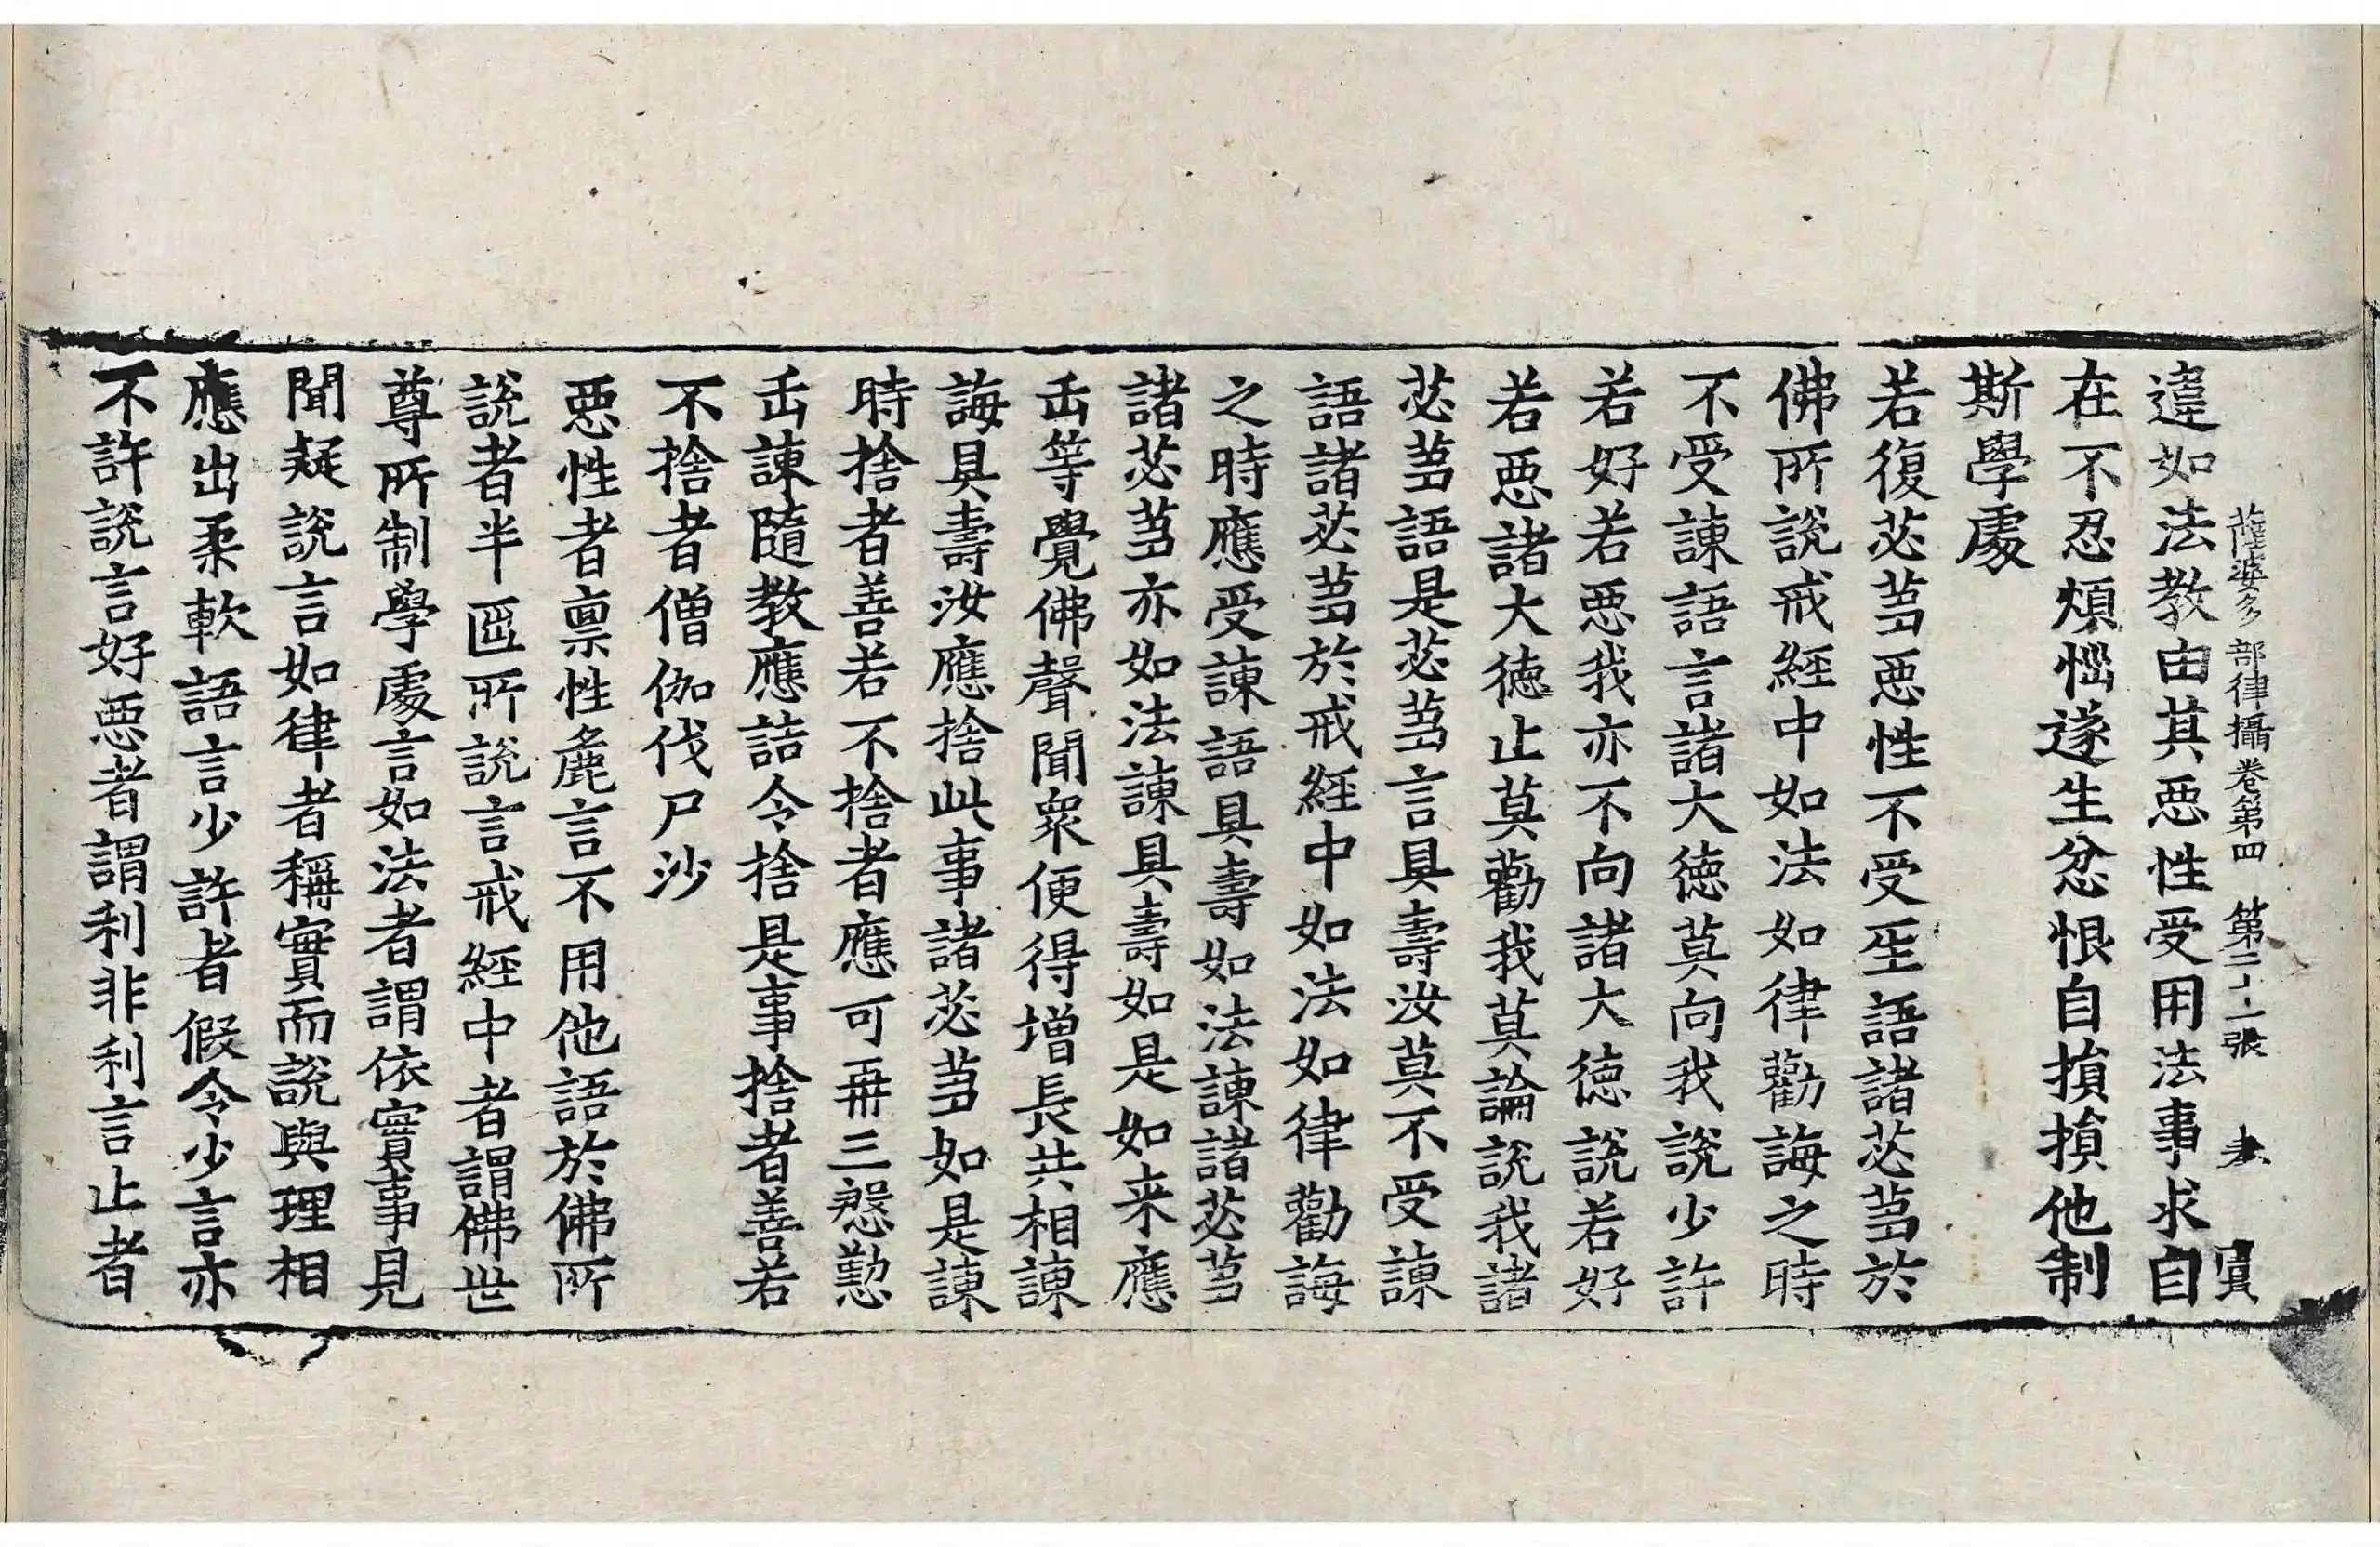 薩婆多部律攝卷第四 第二十二張
違如法教由其惡性受用法事求自
在不忍煩惱遂生忿恨自損損他制
斯學處
若復苾芻惡性不受𤯔語諸苾芻於
佛所說戒經中如法如律勸誨之時
不受諫語言諸大徳莫向我說少許
若好若惡我亦不向諸大徳說若好
若惡諸大徳止莫勸我莫論說我諸
苾芻語是苾芻言具壽汝莫不受諫
語諸苾芻於戒經中如法如律勸誨
之時應受諫語具壽如法諫諸苾芻
諸苾芻亦如法諫具壽如是如来應
𠀍等覺佛聲聞衆便得增長共相諫
誨具壽汝應捨此事諸苾芻如是諫
時捨者善若不捨者應可再三慇懃
𠀍諫隨教應詰令捨是事捨者善若
不捨者僧伽伐尸沙
惡性者禀性麁言不用他語於佛所
說者半𠥱所說言戒經中者謂佛世
尊所制學處言如法者謂依實事見
聞疑說言如律者稱實而說與理相
應出柔軟語言少許者假令少言亦
不許說言好惡者謂利非利言止者